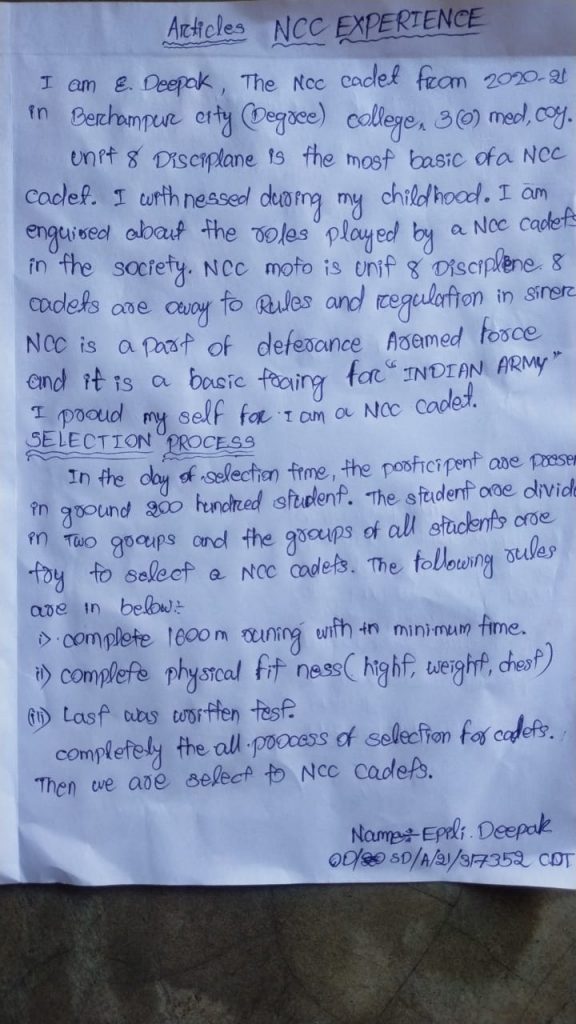 Articles NCC EXPERIENCE
I am E. Deepak, The NCC cadet from 2020-21
in Berhampur city (Degree) college, 3(O) med, coy.
unit & Disciplane is the most basic of a NCC
cadet. I withnessed during my childhood. I am
enquired about the roles played by a NCC cadets
in the society. NCC moto is unit & Disciplene. &
cadets are away to Rules and regulation in sinere
NCC is a part of deferance Aramed force
and it is a basic traing for "INDIAN ARMY"
I proud my self for I am a NCC cadet.
SELECTION PROCESS
In the day of selection time, the participent are presen
in ground 200 hundred student. The student are divide
in Two groups and the groups of all students are
try to select a NCC cadets. The following rules
are in below:-
i) complete 1600m runing with in minimum time.
ii) complete physical fit ness (hight, weight, chest)
(iii) Last was written test.
completely the all process of selection for cadets.
Then we are select to NCC cadets.
Name:- Eppli. Deepak
OD/ SD/A/21/317352 CDT